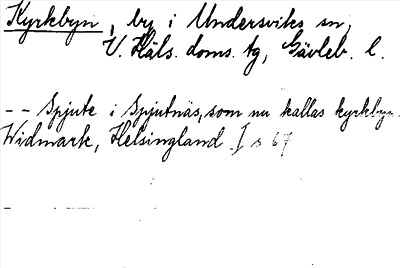 Kyrkbyn, by i Undersviks sn,
V. Häls. doms. tg, Gävleb. l.
-- Spjute i Spjutnäs, som nu kallas kyrkbyn.
Widmark, Helsingland I s 67